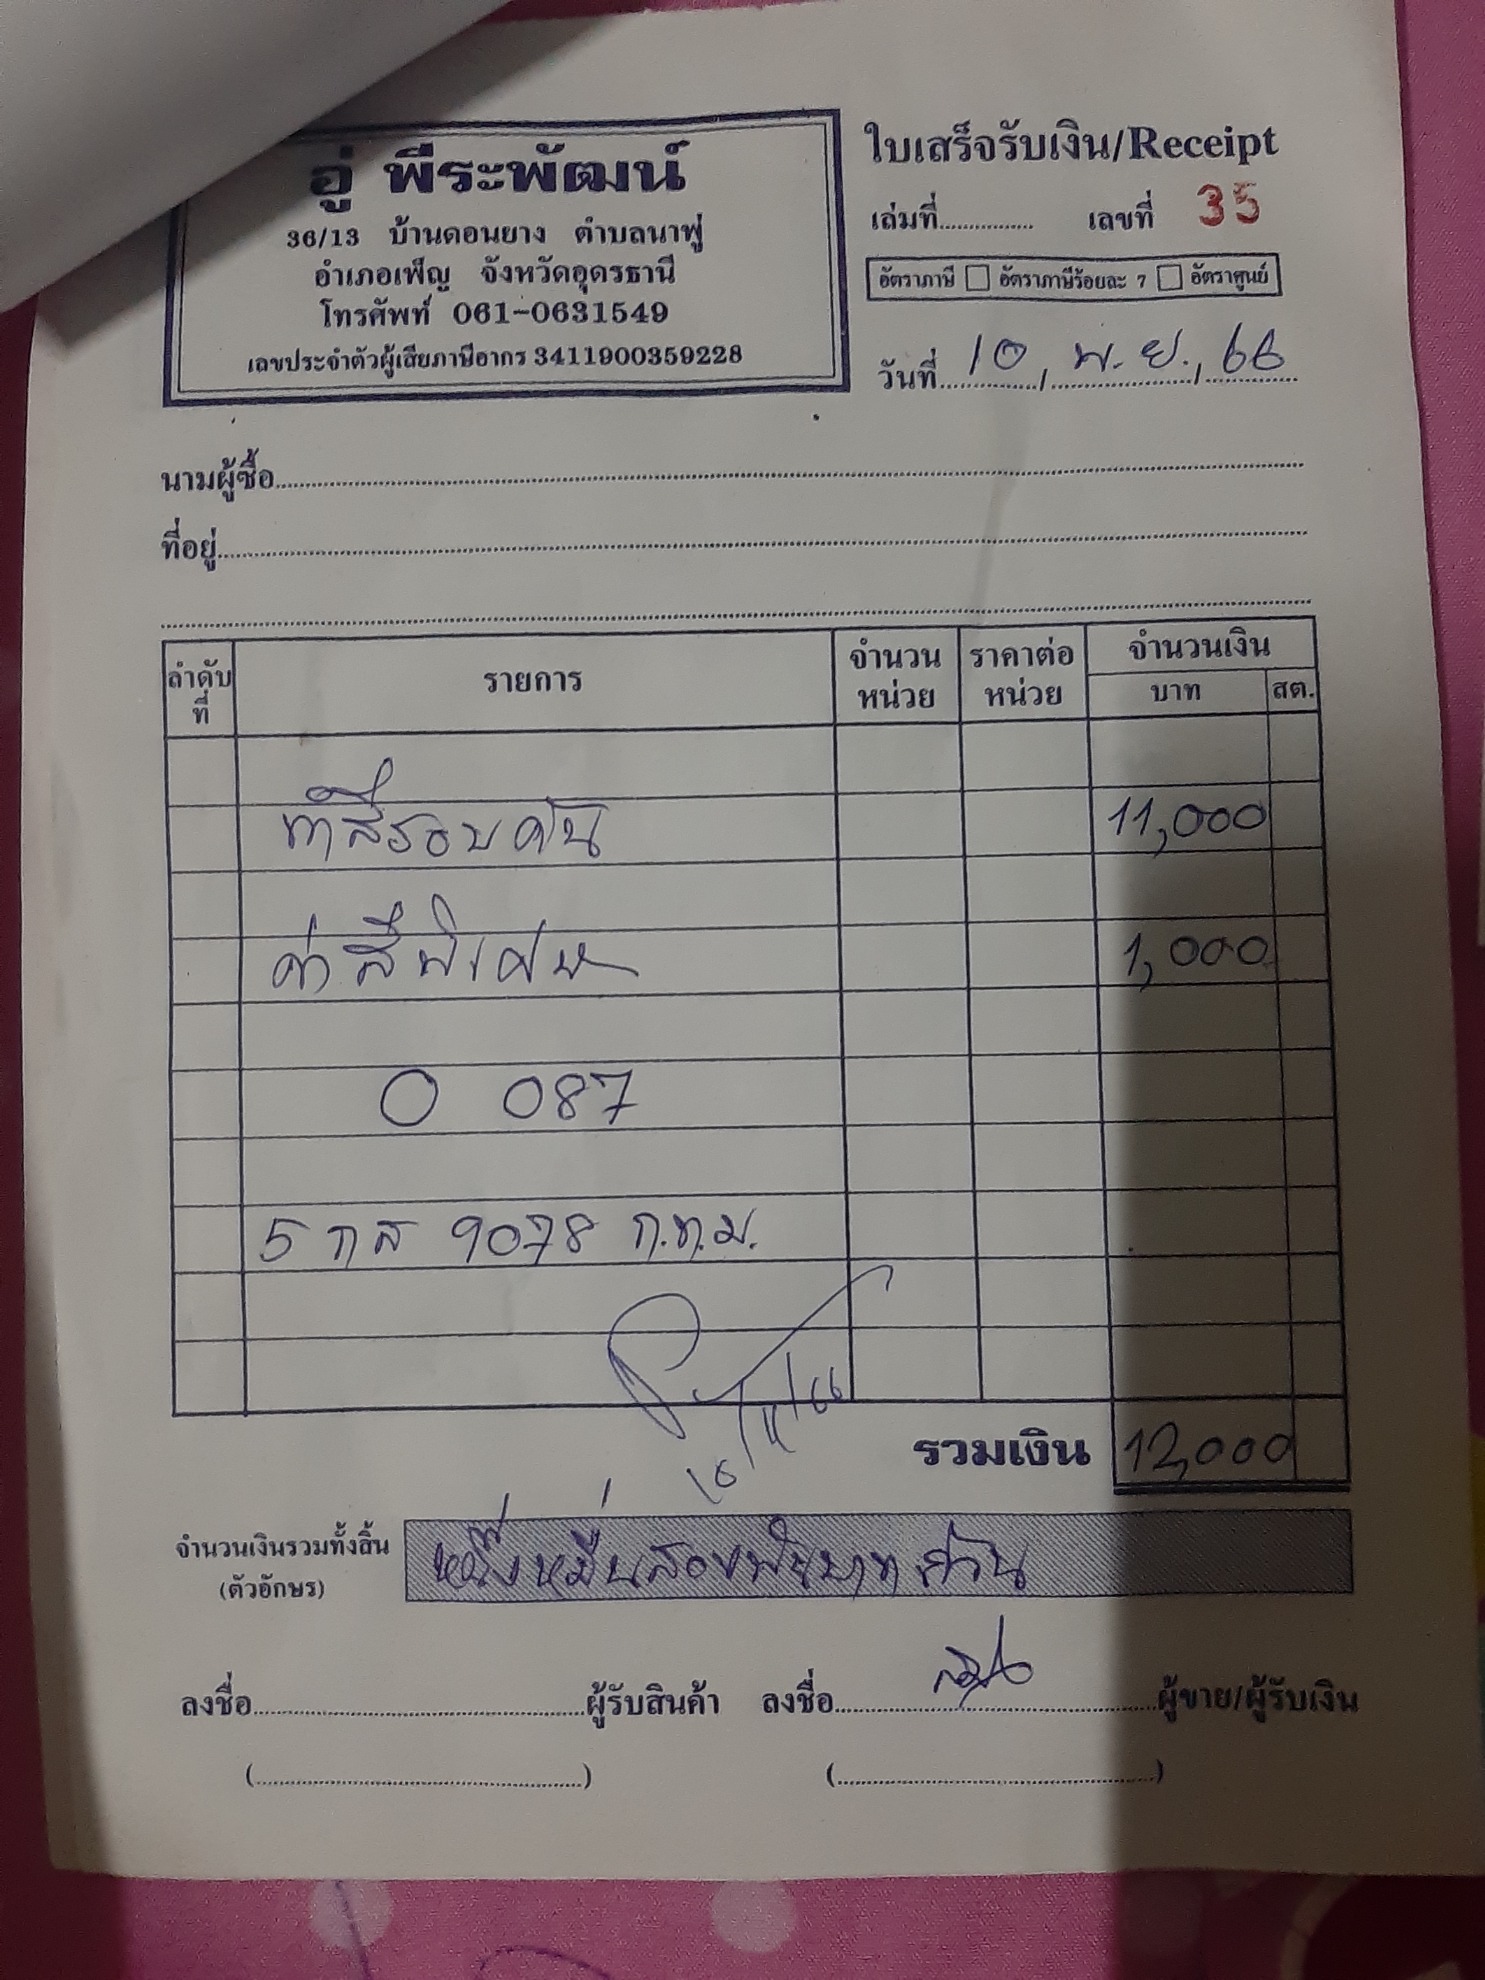 อู่ พีระพัฒน์
36/13 บ้านดอนยาง ตำบลนาพู่
อำเภอเพ็ญ จังหวัดอุดรธานี
โทรศัพท์ 061-0631549
เลขประจำตัวผู้เสียภาษีอากร 3411900359228
ใบเสร็จรับเงิน/Receipt
เล่มที่............... เลขที่ 35
อัตราภาษี อัตราภาษีร้อยละ 7 อัตราศูนย์
วันที่ 10, พ.ย., 66
นามผู้ซื้อ
ที่อยู่
ลำดับที่ รายการ จำนวนหน่วย ราคาต่อหน่วย จำนวนเงิน
บาท สต.
ทำสีรอบคัน 11,000
ค่าสีพิเศษ 1,000
0 087
5 กส 9078 ก.ท.ม.
10/11/66
รวมเงิน 12,000
จำนวนเงินรวมทั้งสิ้น (ตัวอักษร) หนึ่งหมื่นสองพันบาทถ้วน
ลงชื่อ ผู้รับสินค้า ลงชื่อ ผู้ขาย/ผู้รับเงิน